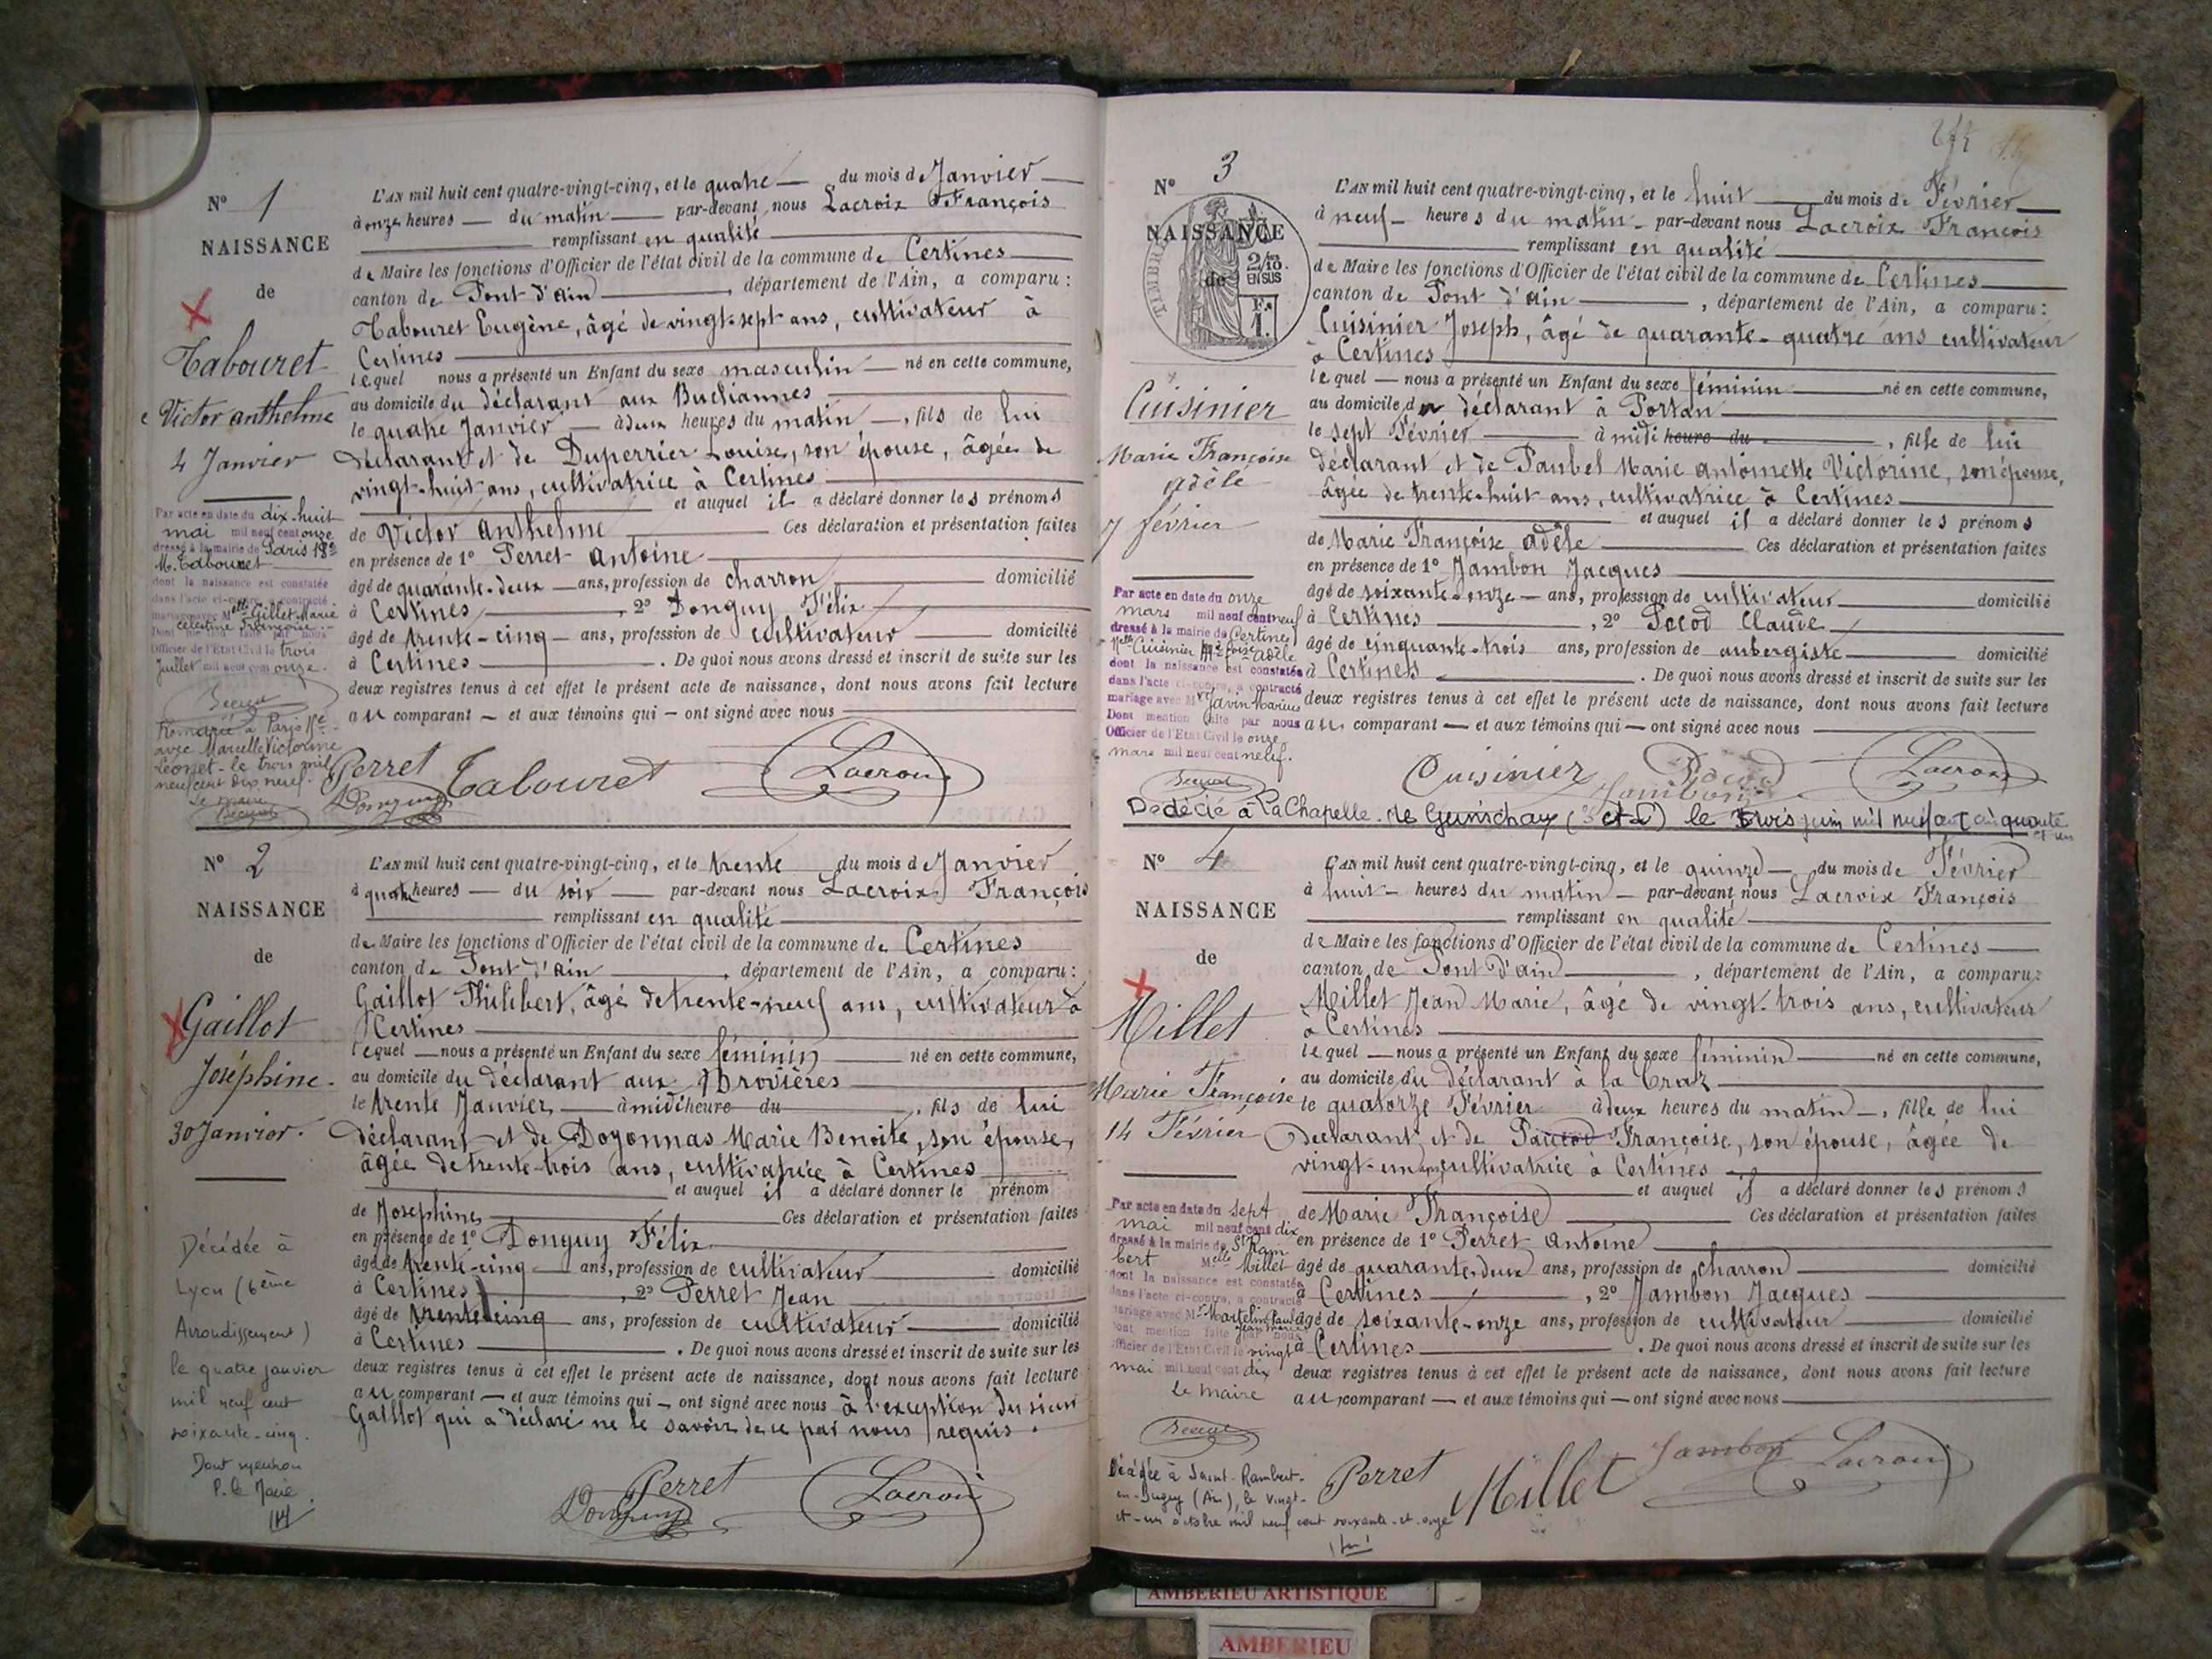 N° 1
NAISSANCE
de
Tabouret
Victor anthelme
4 Janvier
Par acte en date du dix-huit
mai mil neuf cent onze
dressé à la mairie de Paris 18e
M. Tabouret
dont la naissance est constatée
dans l'acte ci-contre, a contracté
mariage avec Melle Gillet Marie
célestine Françoise.
Dont mention faite par nous
Officier de l'Etat Civil le trois
Juillet mil neuf cent onze.
Remarié à Paris
avec Marcelle Victorine
Léonet le trois mil
neuf cent dix neuf.
Le maire
L'AN mil huit cent quatre-vingt-cinq, et le quatre du mois de Janvier
à onze heures du matin par-devant nous Lacroix François
remplissant en qualité
de Maire les fonctions d'Officier de l'état civil de la commune de Certines
canton de Pont d'ain, département de l'Ain, a comparu :
Tabouret Eugène, âgé de vingt-sept ans, cultivateur à
Certines
lequel nous a présenté un Enfant du sexe masculin né en cette commune,
au domicile du déclarant aux
le quatre Janvier à deux heures du matin, fils de lui
déclarant et de Duperrier Louise, son épouse, âgée de
vingt-huit ans, cultivatrice à Certines
et auquel il a déclaré donner les prénoms
de Victor Anthelme Ces déclaration et présentation faites
en présence de 1° Perret antoine
âgé de quarante-deux ans, profession de charron domicilié
à Certines, 2° Donguy Félix
âgé de trente-cinq ans, profession de cultivateur domicilié
à Certines. De quoi nous avons dressé et inscrit de suite sur les
deux registres tenus à cet effet le présent acte de naissance, dont nous avons fait lecture
au comparant et aux témoins qui ont signé avec nous
Perret Tabouret Lacroix
Donguy
N° 2
NAISSANCE
de
Gaillot
Joséphine.
30 Janvier.
Décédée à
Lyon (6ème
Arrondissement)
le quatre janvier
mil neuf cent
soixante-cinq.
Dont mention
P. le Maire
L'AN mil huit cent quatre-vingt-cinq, et le trente du mois de Janvier
à quatre heures du soir par-devant nous Lacroix François
remplissant en qualité
de Maire les fonctions d'Officier de l'état civil de la commune de Certines
canton de Pont d'Ain, département de l'Ain, a comparu :
Gaillot Philibert, âgé de trente-neuf ans, cultivateur à
Certines
lequel nous a présenté un Enfant du sexe féminin né en cette commune,
au domicile du déclarant aux Brovières
le trente Janvier à midi heure du, fils de lui
déclarant et de Doyonnas Marie Benoite, son épouse,
âgée de trente-trois ans, cultivatrice à Certines
et auquel il a déclaré donner le prénom
de Josephine Ces déclaration et présentation faites
en présence de 1° Donguy Félix
âgé de trente-cinq ans, profession de cultivateur domicilié
à Certines, 2° Perret Jean
âgé de trente cinq ans, profession de cultivateur domicilié
à Certines. De quoi nous avons dressé et inscrit de suite sur les
deux registres tenus à cet effet le présent acte de naissance, dont nous avons fait lecture
au comparant et aux témoins qui ont signé avec nous à l'exception du sieur
Gaillot qui a déclaré ne le savoir de ce par nous requis.
Perret Lacroix
Donguy
N° 3
NAISSANCE
de
TIMBRE
2/10.
EN SUS
1 F.
Cuisinier
Marie Françoise
adèle
7 février
Par acte en date du onze
mars mil neuf cent neuf
dressé à la mairie de Certines
Melle Cuisinier Mie foise adèle
dont la naissance est constatée
dans l'acte ci-contre, a contracté
mariage avec Mr Javin Marius
Dont mention faite par nous
Officier de l'Etat Civil le onze
mars mil neuf cent neuf.
L'AN mil huit cent quatre-vingt-cinq, et le huit du mois de Février
à neuf heures du matin par-devant nous Lacroix François
remplissant en qualité
de Maire les fonctions d'Officier de l'état civil de la commune de Certines
canton de Pont d'ain, département de l'Ain, a comparu :
Cuisinier Joseph, âgé de quarante-quatre ans cultivateur
à Certines
lequel nous a présenté un Enfant du sexe féminin né en cette commune,
au domicile du déclarant à Portan
le sept Février à midi heure du, fille de lui
déclarant et de Paubel Marie antoinette Victorine, son épouse,
âgée de trente-huit ans, cultivatrice à Certines
et auquel il a déclaré donner les prénoms
de Marie Françoise adèle Ces déclaration et présentation faites
en présence de 1° Jambon Jacques
âgé de soixante-onze ans, profession de cultivateur domicilié
à Certines, 2° Pocod Claude
âgé de cinquante-trois ans, profession de aubergiste domicilié
à Certines. De quoi nous avons dressé et inscrit de suite sur les
deux registres tenus à cet effet le présent acte de naissance, dont nous avons fait lecture
au comparant et aux témoins qui ont signé avec nous
Cuisinier Pocod Lacroix
Jambon
Dedécié à La Chapelle de Guinchay (S et L) le trois juin mil neuf cent cinquante
et un
N° 4
NAISSANCE
de
Millet
Marie Françoise
14 Février
Par acte en date du sept
mai mil neuf cent dix
dressé à la mairie de St Ram
bert Melle Millet
dont la naissance est constatée
dans l'acte ci-contre, a contracté
mariage avec Mr Martelin Paul
Jean Marie
Dont mention faite par nous
Officier de l'Etat Civil le vingt
mai mil neuf cent dix
le Maire
Décédée à Saint-Rambert-
en-Bugey (Ain), le vingt-
et-un octobre mil neuf cent soixante-et-onze
L'AN mil huit cent quatre-vingt-cinq, et le quinze du mois de Février
à huit heures du matin par-devant nous Lacroix François
remplissant en qualité
de Maire les fonctions d'Officier de l'état civil de la commune de Certines
canton de Pont d'ain, département de l'Ain, a comparu :
Millet Jean Marie, âgé de vingt-trois ans, cultivateur
à Certines
lequel nous a présenté un Enfant du sexe féminin né en cette commune,
au domicile du déclarant à la Craz
le quatorze Février à deux heures du matin, fille de lui
déclarant et de Françoise, son épouse, âgée de
vingt-un ans, cultivatrice à Certines
et auquel il a déclaré donner les prénoms
de Marie Françoise Ces déclaration et présentation faites
en présence de 1° Perret antoine
âgé de quarante-deux ans, profession de charron domicilié
à Certines, 2° Jambon Jacques
âgé de soixante-onze ans, profession de cultivateur domicilié
à Certines. De quoi nous avons dressé et inscrit de suite sur les
deux registres tenus à cet effet le présent acte de naissance, dont nous avons fait lecture
au comparant et aux témoins qui ont signé avec nous
Perret Millet Jambon Lacroix
AMBERIEU ARTISTIQUE
AMBERIEU